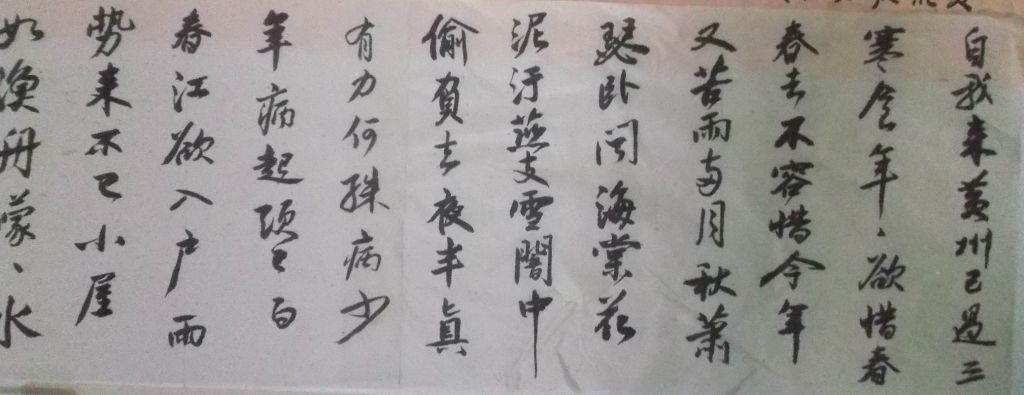 自我来黄州已過三
寒食年、欲惜春
春去不容惜今年
又苦雨兩月秋蕭
瑟卧闻海棠花
泥汙燕支雪闇中
偷負去夜半真
有力何殊病少
年病起頭已白
春江欲入户雨
勢来不已小屋
如漁舟蒙、水